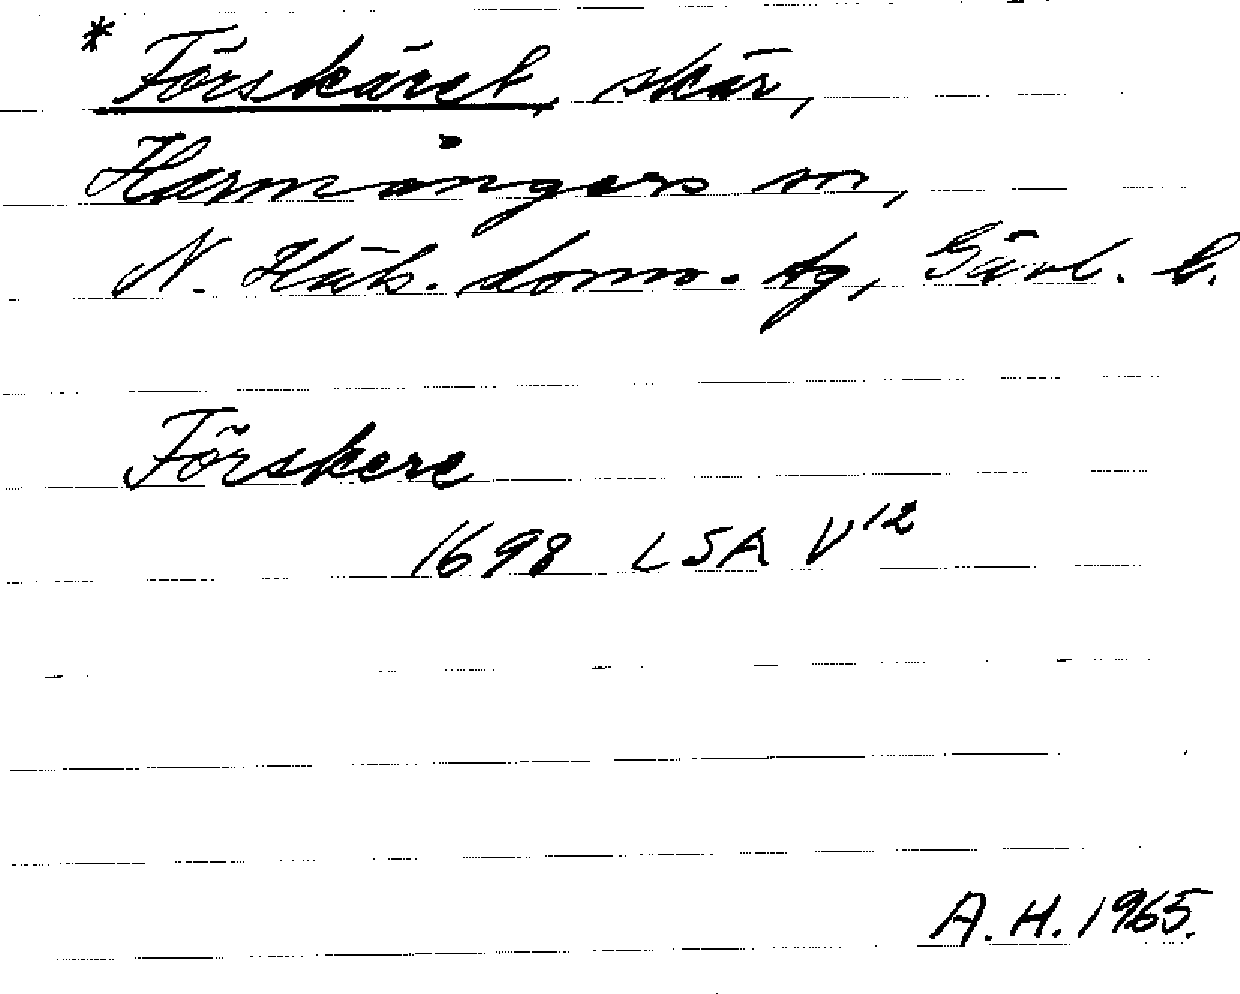 * Förskäret, skär,
Harmångers sn,
N. Häls. doms. tg, Gävl. l.
Förskere
1698 LSA V12
A. H. 1965.